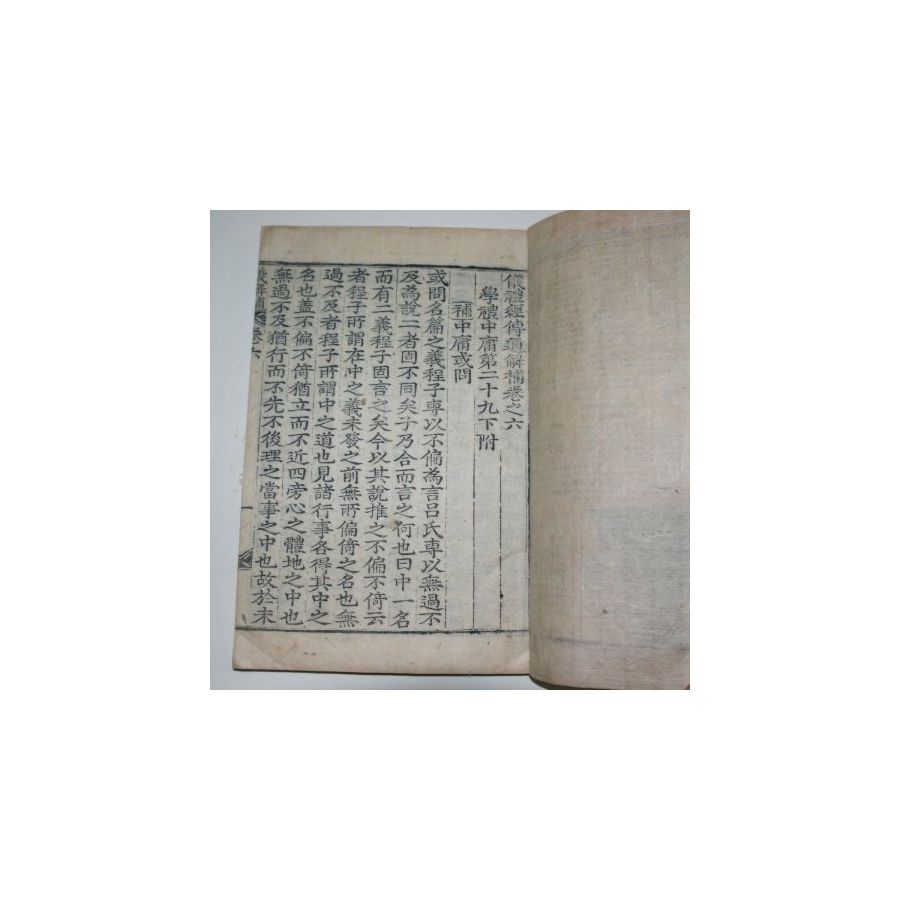 儀禮經傳通解補卷之六
學禮中庸第二十九下附
補中庸或問
或問名篇之義程子專以不偏為言呂氏專以無過不
及為說二者固不同矣子乃合而言之何也曰中一名
而有二義程子固言之矣今以其說推之不偏不倚云
者程子所謂在中之義未發之前無所偏倚之名也無
過不及者程子所謂中之道也見諸行事各得其中之
名也盖不偏不倚猶立而不近四旁心之體地之中也
無過不及猶行而不先不後理之當事之中也故於未
卷六
一